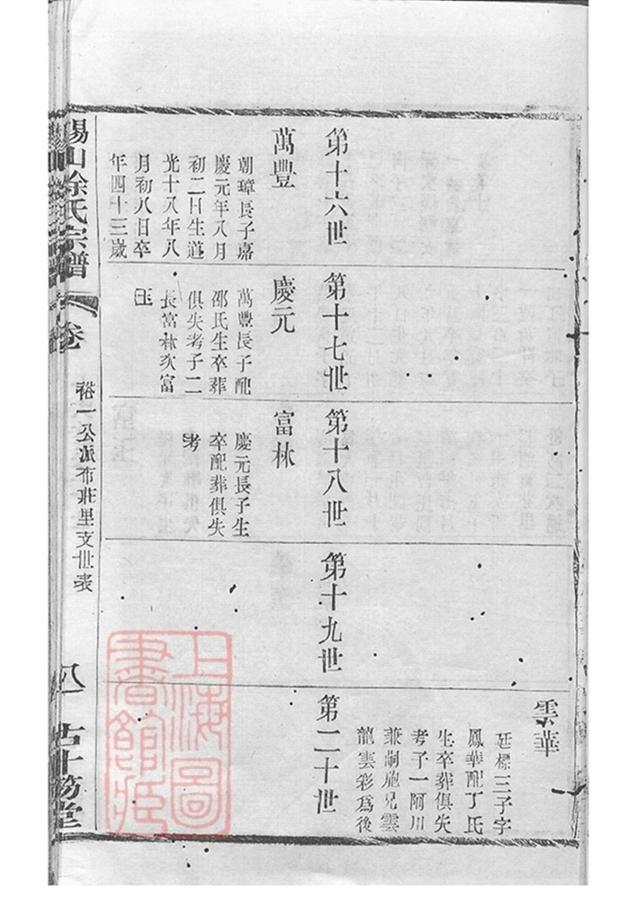 雲華
廷標三子字
鳳華配丁氏
生卒葬俱失
考子一阿川
兼嗣胞兄雲
龍雲彩爲後
第十六世
第十七世
第十八世
第十九世
第二十世
萬豐
朝璋長子嘉
慶元年八月
初二日生道
光十八年八
月初八日卒
年四十三歲
慶元
萬豐長子配
邵氏生卒葬
俱失考子二
長富林次富
玉
富林
慶元長子生
卒配葬俱失
考
錫山徐氏宗譜
卷
裕一公派布莊里支世表
上海圖
書館藏